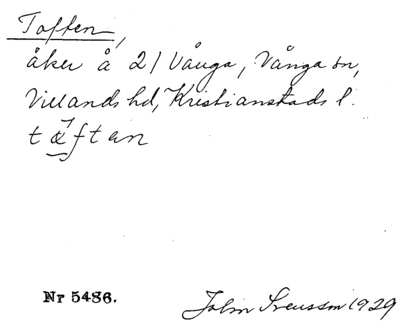 Toften,
åker å 21 Vånga, Vånga sn,
Villands hd, Kristianstads l.
Nr 5486.
John Svensson 1929